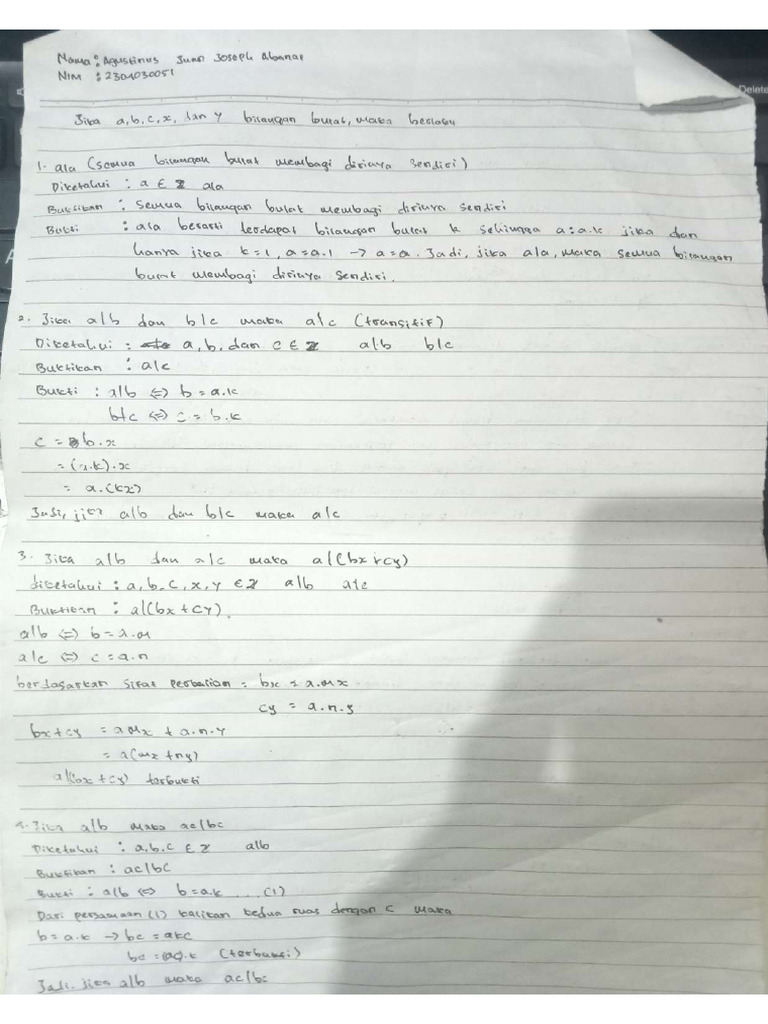 Nama : Agustinus Juan Joseph Abanat
NIM : 2304030051
Delete
Jika a, b, c, x, dan y bilangan bulat, maka berlaku
1. a|a (semua bilangan bulat membagi dirinya sendiri)
Diketahui : a ∈ Z a|a
Buktikan : Semua bilangan bulat membagi dirinya sendiri
Bukti : a|a berarti terdapat bilangan bulat k sehingga a = a.k jika dan
hanya jika k = 1, a = a.1 → a = a. Jadi, jika a|a, maka semua bilangan
bulat membagi dirinya sendiri.
2. Jika a|b dan b|c maka a|c (transitif)
Diketahui : a, b, dan c ∈ Z a|b b|c
Buktikan : a|c
Bukti : a|b ⇔ b = a.k
b|c ⇔ c = b.k
c = b.x
= (a.k).x
= a.(kx)
Jadi, jika a|b dan b|c maka a|c
3. Jika a|b dan a|c maka a|(bx+cy)
diketahui : a, b, c, x, y ∈ Z a|b a|c
Buktikan : a|(bx + cy).
a|b ⇔ b = a.m
a|c ⇔ c = a.n
berdasarkan sifat perkalian = bx = a.mx
cy = a.n.y
bx+cy = a mx + a.n.y
= a(mx + ny)
a|(bx + cy) terbukti
4. Jika a|b maka ac|bc
Diketahui : a, b, c ∈ Z a|b
Buktikan : ac|bc
Bukti : a|b ⇔ b = a.k ... (1)
Dari persamaan (1) kalikan kedua ruas dengan c maka
b = a.k → bc = akc
bc = (ac).k (terbukti)
Jadi, jika a|b maka ac|bc